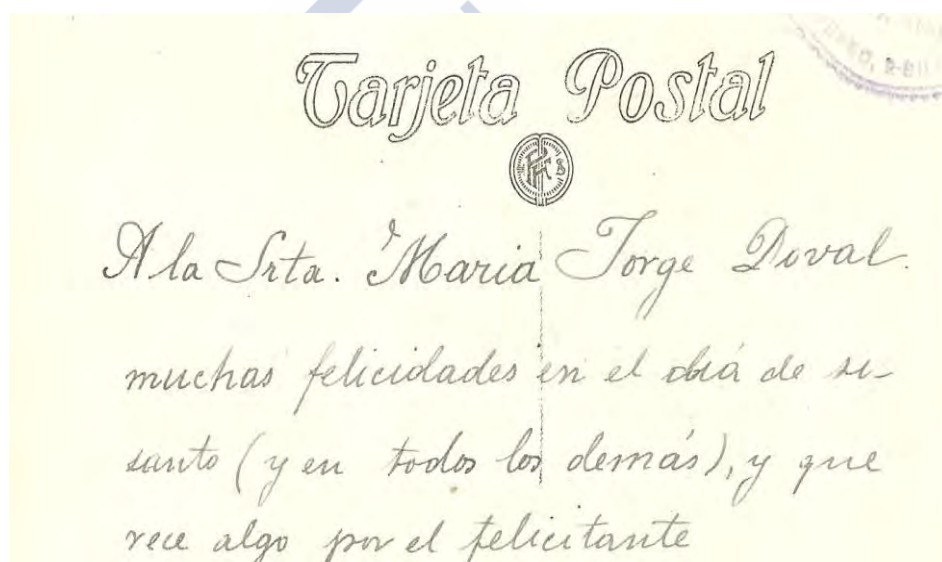 Tarjeta Postal
A la Srta. Maria Jorge Doval.
muchas felicidades en el diá de su
santo (y en todos los demás), y que
rece algo por el felicitante